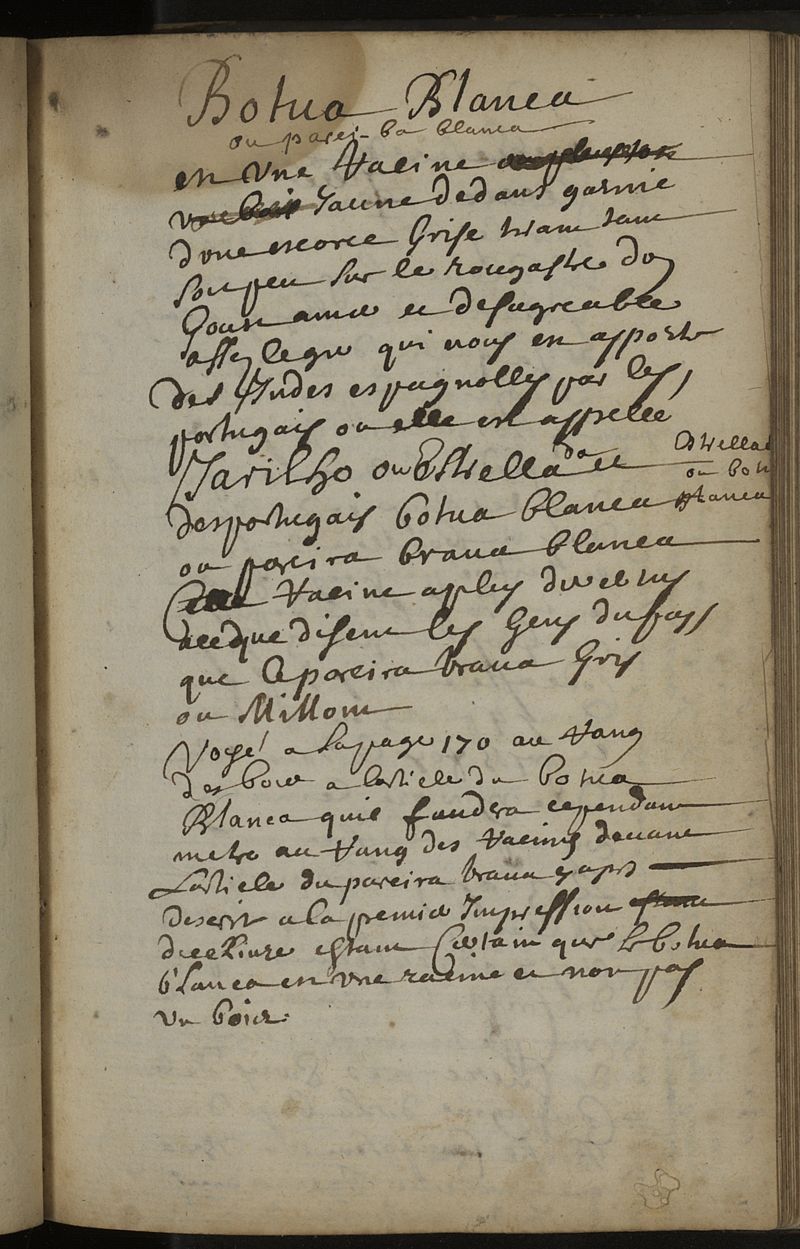 Botua Blanca
ou parei-ba blanca
est vne Racine
Jaune dedans garnie
dvne escorce Grise tirant tant
soit peu sur le rougastre du
Goust amer et desagreable
assez legere qui nous est apporte
des Indes espagnolles par les
portugais ou elle est appellé
ou Estrellada et
Estrella
ou botu
blanca
des portugais botua blanca
ou pareira braua blanca
Racine a plus de vertus
a ce que disent les Gens du pays
que le pareira braua Gris
ou
Voyé a la page 170 au Rang
des bois a larticle du botua
Blanca quil faudra cependant
metre au Rang des Racines deuant
Larticle du pareira braua
descrit a la premier Impression
de ce Liure estant Certain que le botua
blanca est vne racine et non pas
vn bois.